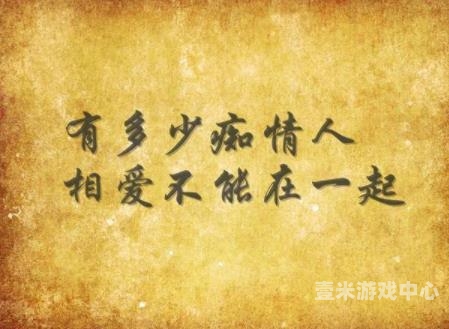 有多少痴情人
相爱不能在一起
壹米游戏中心